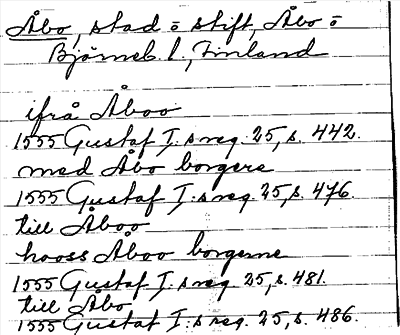 Åbo, stad o stift, Åbo o
Björneb. l., Finland
ifrå Åboo
1555 Gustaf I:s reg. 25, s. 442.
med Åbo borgere
1555 Gustaf I:s reg. 25, s. 476.
till Åboo
hooss Åboo borgerne
1555 Gustaf I:s reg. 25, s. 481.
till Åbo
1555 Gustaf I:s reg. 25, s. 486.